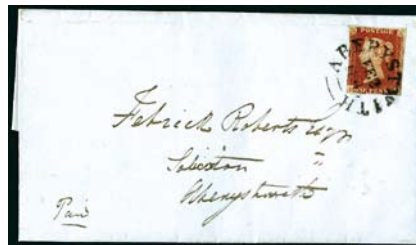 POSTAGE
ABERYSTWITH
FE
Fetrick Roberts Esqr
Solicitor "
Aberystwith
Paid